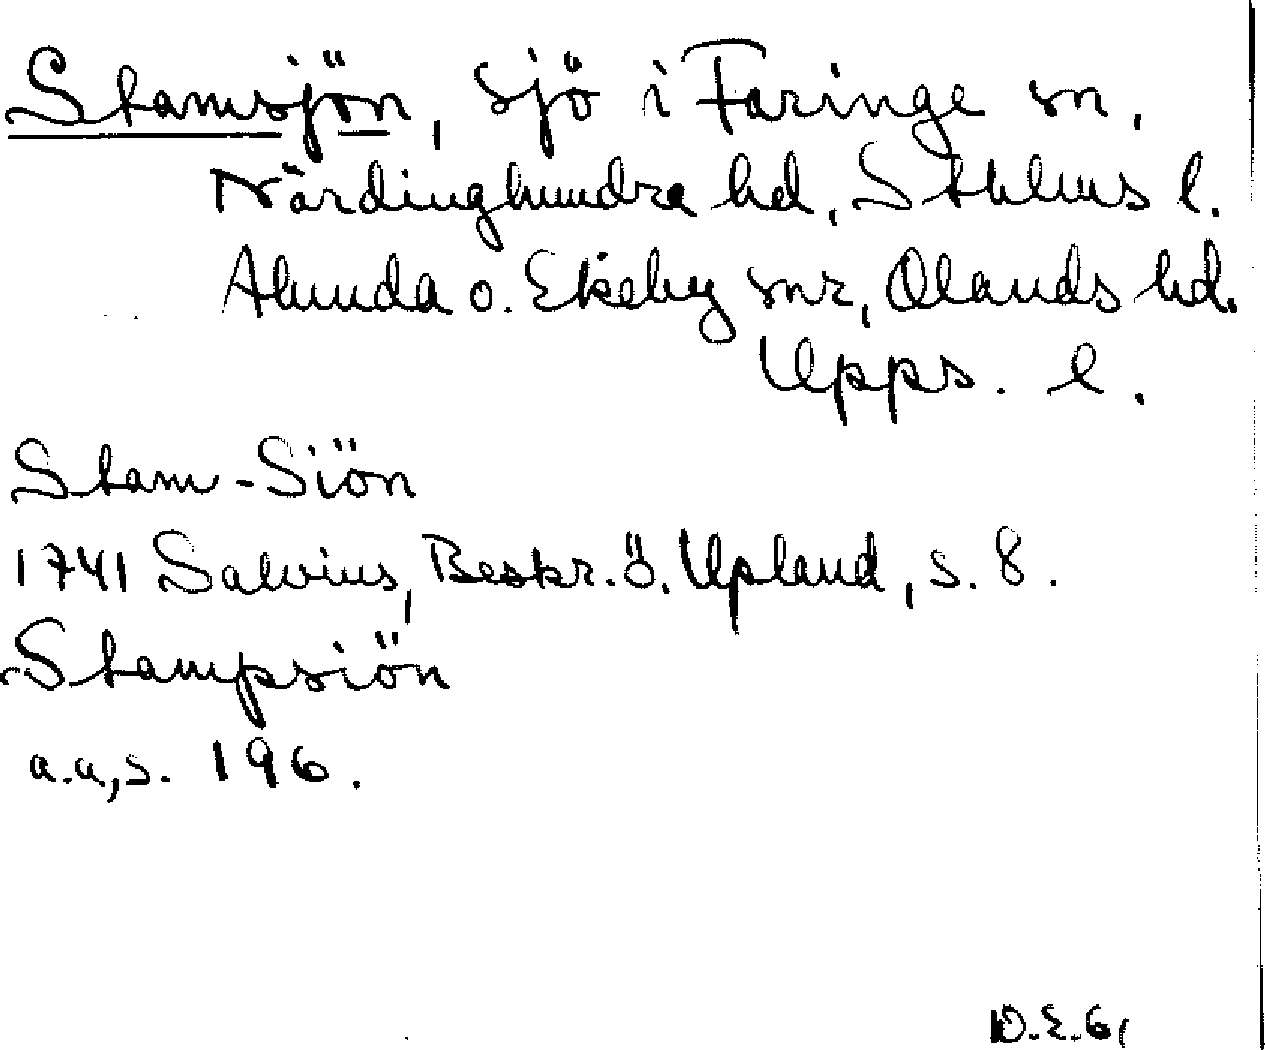 Stamsjön, sjö i Faringe sn.
Närdinghundra hd, Sthlms l.
Alunda o. Ekeby snr, Olands hd.
Upps. l.
Stam-Siön
1741 Salvius, Beskr. ö. Upland, s. 8.
Stampsiön
a.a, s. 196.
D.E. 61